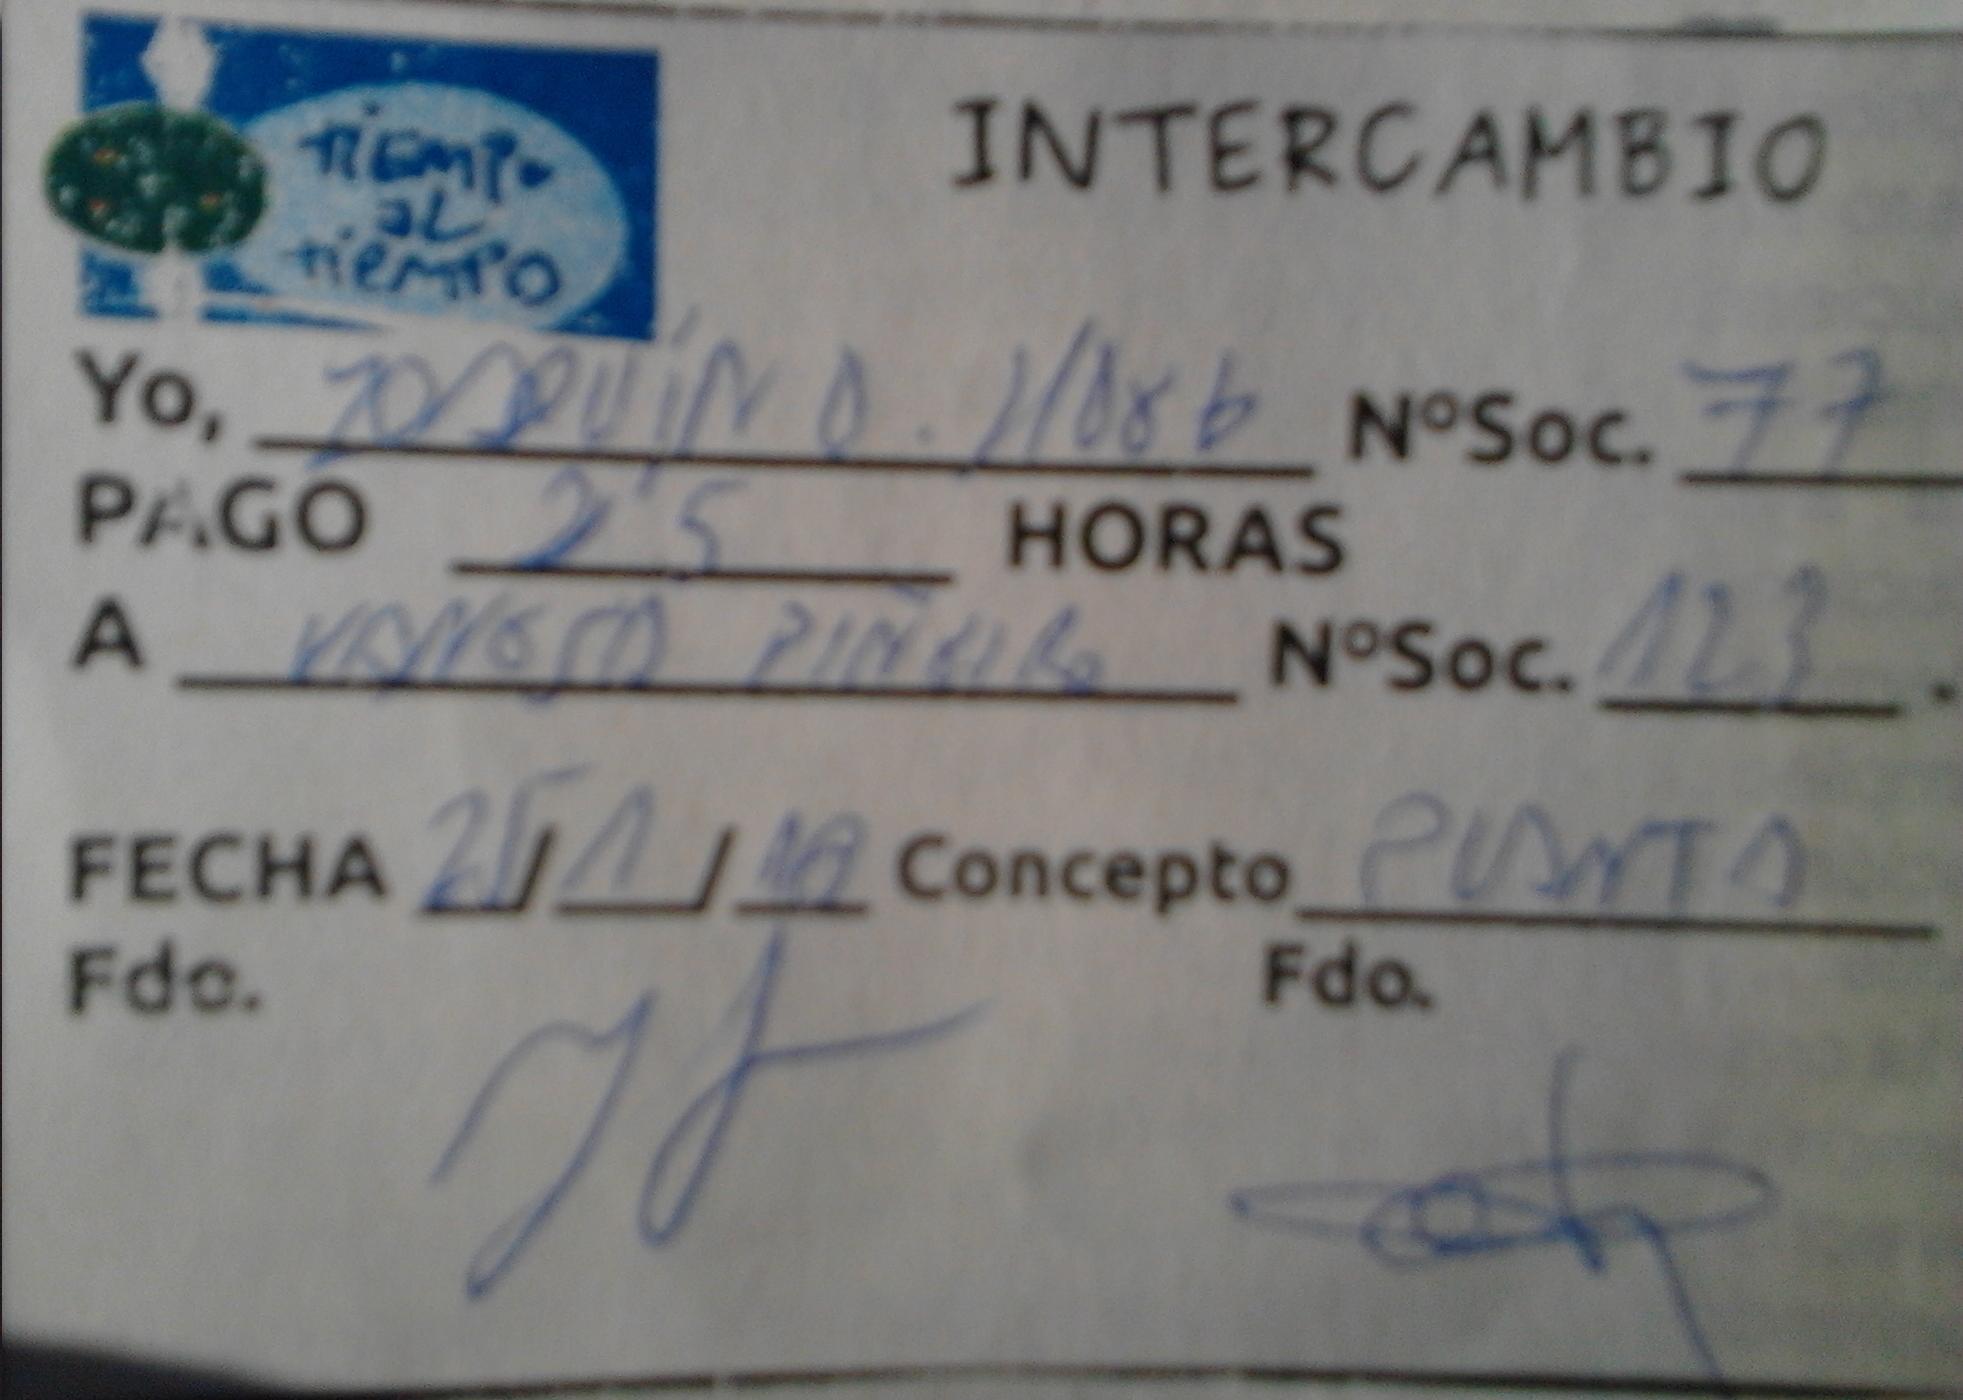 TiEMPO
aL
TiEMPO
INTERCAMBIO
Yo, JOAQUÍN A. NºSoc. 77
PAGO 2'5 HORAS
A VANESSA PIÑEIRO NºSoc. 123.
FECHA 25/1/19 Concepto PLANTA
Fdo. Fdo.